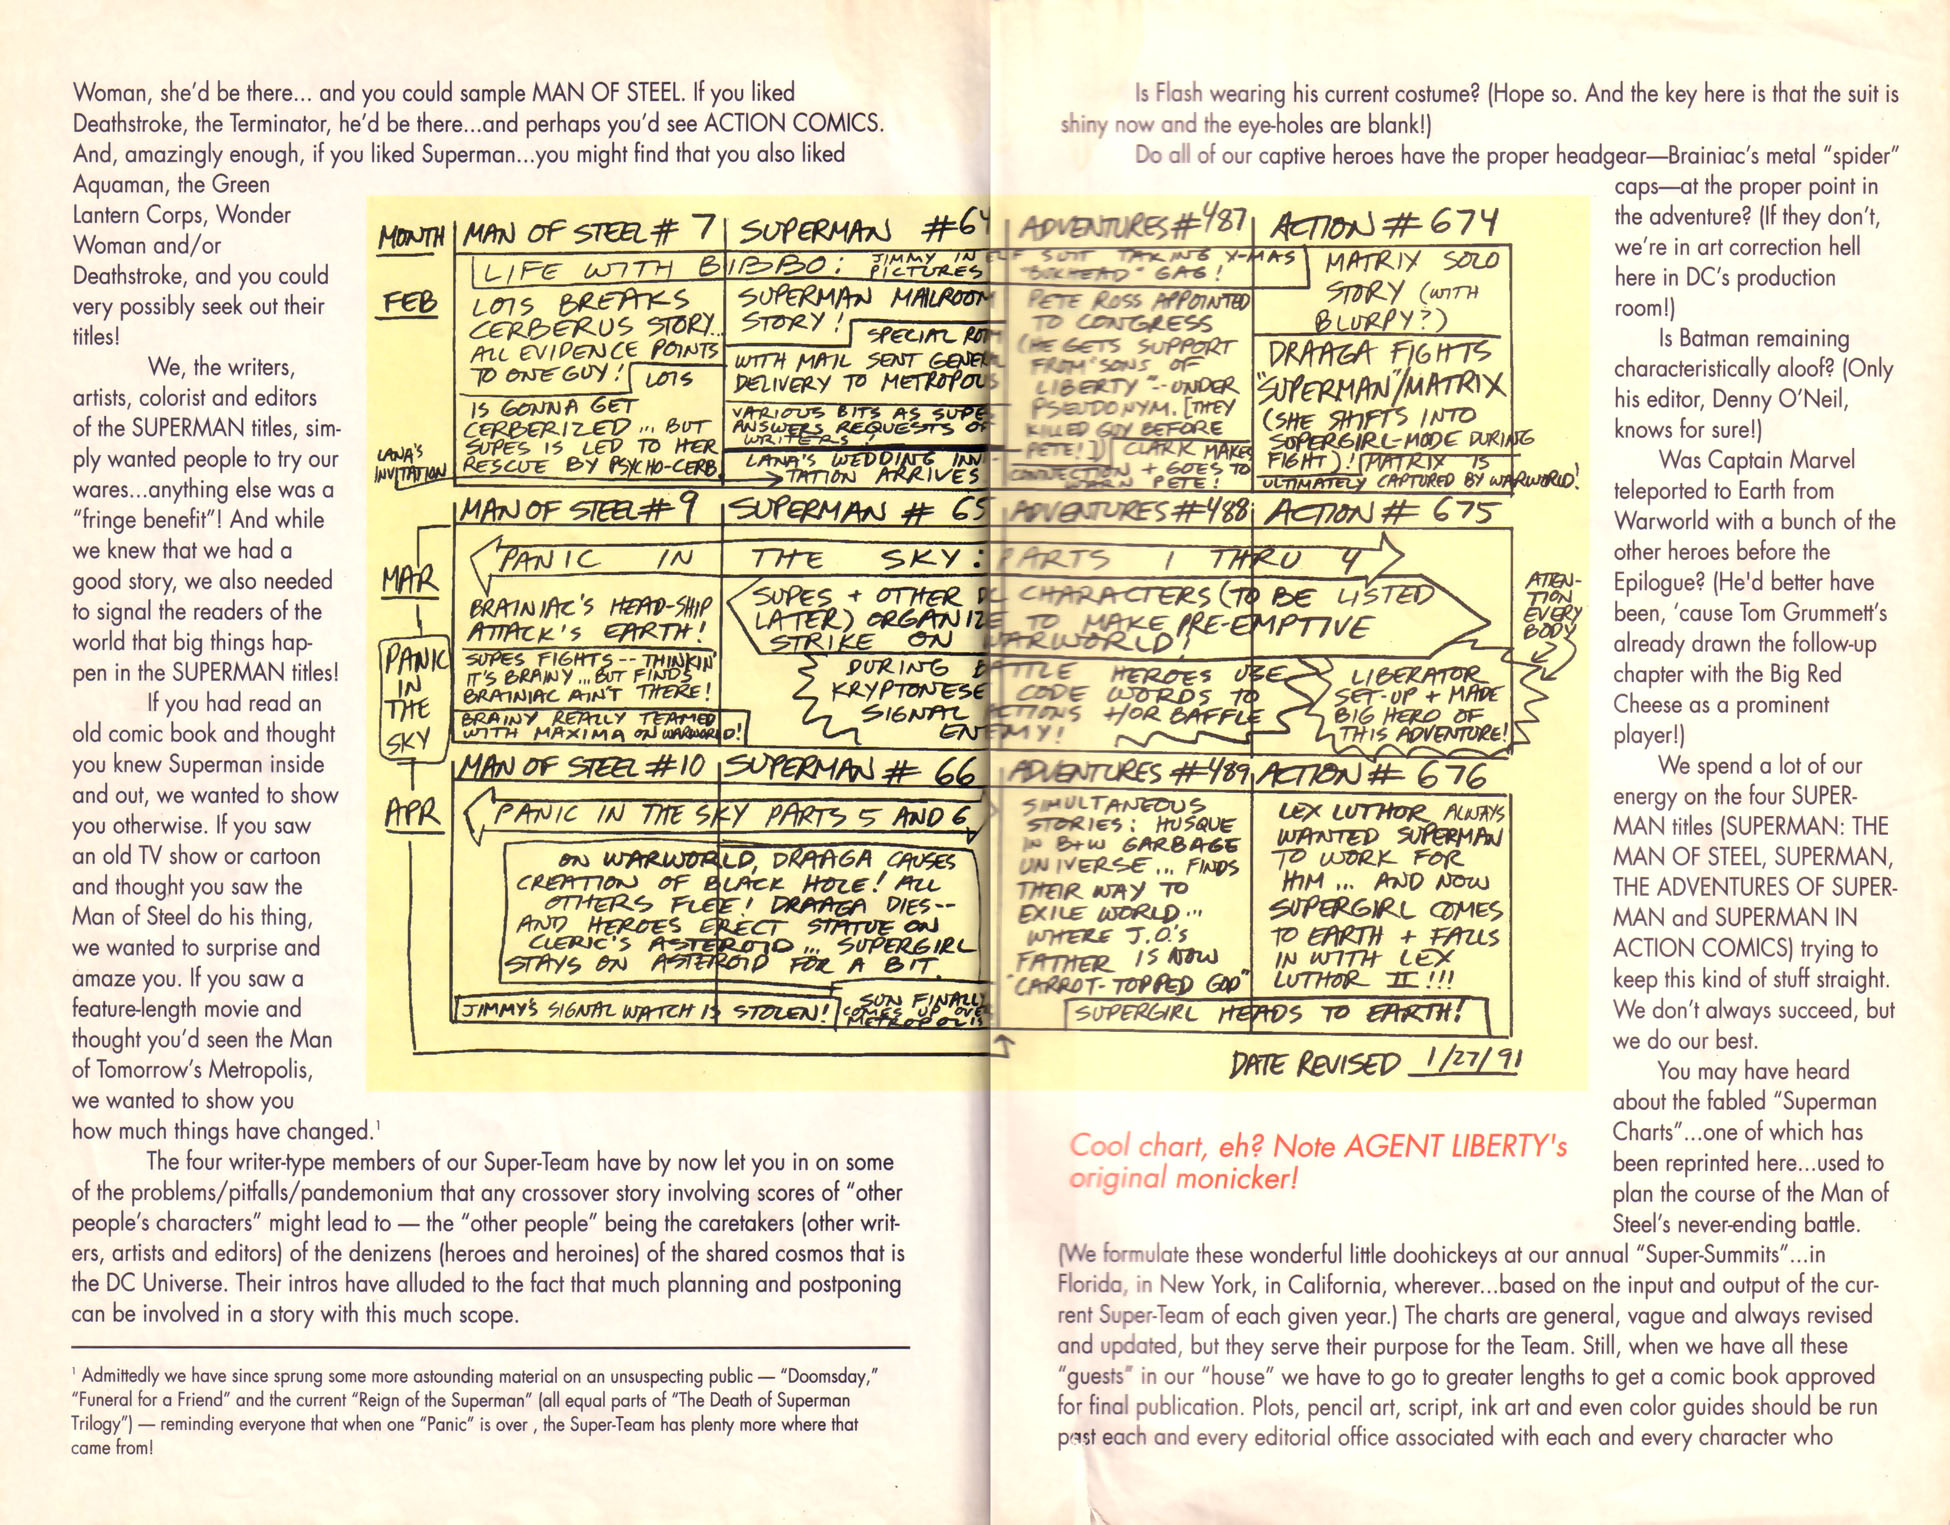 Woman, she'd be there... and you could sample MAN OF STEEL. If you liked
Deathstroke, the Terminator, he'd be there...and perhaps you'd see ACTION COMICS.
And, amazingly enough, if you liked Superman...you might find that you also liked
Aquaman, the Green
Lantern Corps, Wonder
Woman and/or
Deathstroke, and you could
very possibly seek out their
titles!
We, the writers,
artists, colorist and editors
of the SUPERMAN titles, sim-
ply wanted people to try our
wares...anything else was a
"fringe benefit"! And while
we knew that we had a
good story, we also needed
to signal the readers of the
world that big things hap-
pen in the SUPERMAN titles!
If you had read an
old comic book and thought
you knew Superman inside
and out, we wanted to show
you otherwise. If you saw
an old TV show or cartoon
and thought you saw the
Man of Steel do his thing,
we wanted to surprise and
amaze you. If you saw a
feature-length movie and
thought you'd seen the Man
of Tomorrow's Metropolis,
we wanted to show you
how much things have changed.¹
The four writer-type members of our Super-Team have by now let you in on some
of the problems/pitfalls/pandemonium that any crossover story involving scores of "other
people's characters" might lead to — the "other people" being the caretakers (other writ-
ers, artists and editors) of the denizens (heroes and heroines) of the shared cosmos that is
the DC Universe. Their intros have alluded to the fact that much planning and postponing
can be involved in a story with this much scope.
¹ Admittedly we have since sprung some more astounding material on an unsuspecting public — "Doomsday,"
"Funeral for a Friend" and the current "Reign of the Superman" (all equal parts of "The Death of Superman
Trilogy") — reminding everyone that when one "Panic" is over , the Super-Team has plenty more where that
came from!
MONTH
MAN OF STEEL # 7
SUPERMAN #64
ADVENTURES #487
ACTION # 674
FEB
LIFE WITH BIBBO: JIMMY IN ELF SUIT TAKING X-MAS
PICTURES "BUKHEAD" GAG!
LOIS BREAKS
CERBERUS STORY...
ALL EVIDENCE POINTS
TO ONE GUY! LOIS
IS GONNA GET
CERBERIZED ... BUT
SUPES IS LED TO HER
RESCUE BY PSYCHO-CERB.
LANA'S
INVITATION
SUPERMAN MAILROOM
STORY! SPECIAL ROOM
WITH MAIL SENT GENERAL
DELIVERY TO METROPOLIS
VARIOUS BITS AS SUPES
ANSWERS REQUESTS OF
WRITERS!
LANA'S WEDDING INVI-
TATION ARRIVES
PETE ROSS APPOINTED
TO CONGRESS
(HE GETS SUPPORT
FROM "SONS OF
LIBERTY"-- UNDER
PSEUDONYM. [THEY
KILLED GUY BEFORE
PETE!]) CLARK MAKES
CONNECTION + GOES TO
WARN PETE!
MATRIX SOLO
STORY (WITH
BLURPY?)
DRAAGA FIGHTS
"SUPERMAN"/MATRIX
(SHE SHIFTS INTO
SUPERGIRL-MODE DURING
FIGHT)! MATRIX IS
ULTIMATELY CAPTURED BY WARWORLD!
MAN OF STEEL # 9
SUPERMAN # 65
ADVENTURES #488
ACTION # 675
MAR
PANIC
IN
THE
SKY
PANIC IN THE SKY: PARTS 1 THRU 4
BRAINIAC'S HEAD-SHIP
ATTACK'S EARTH!
SUPES FIGHTS -- THINKIN'
IT'S BRAINY ... BUT FINDS
BRAINIAC AIN'T THERE!
BRAINY REALLY TEAMED
WITH MAXIMA ON WARWORLD!
SUPES + OTHER DC CHARACTERS (TO BE LISTED
LATER) ORGANIZE TO MAKE PRE-EMPTIVE
STRIKE ON WARWORLD!
DURING BATTLE HEROES USE
KRYPTONESE CODE WORDS TO
SIGNAL ACTIONS +/OR BAFFLE
ENEMY!
LIBERATOR
SET-UP + MADE
BIG HERO OF
THIS ADVENTURE!
ATTEN-
TION
EVERY
BODY
MAN OF STEEL #10
SUPERMAN # 66
ADVENTURES #489
ACTION # 676
APR
PANIC IN THE SKY PARTS 5 AND 6
ON WARWORLD, DRAAGA CAUSES
CREATION OF BLACK HOLE! ALL
OTHERS FLEE! DRAAGA DIES--
AND HEROES ERECT STATUE ON
CLERIC'S ASTEROID ... SUPERGIRL
STAYS ON ASTEROID FOR A BIT.
JIMMY'S SIGNAL WATCH IS STOLEN!
SUN FINALLY
COMES UP OVER
METROPOLIS
SIMULTANEOUS
STORIES: HUSQUE
IN B+W GARBAGE
UNIVERSE ... FINDS
THEIR WAY TO
EXILE WORLD ...
WHERE J.O.'S
FATHER IS NOW
"CARROT-TOPPED GOD"
LEX LUTHOR ALWAYS
WANTED SUPERMAN
TO WORK FOR
HIM ... AND NOW
SUPERGIRL COMES
TO EARTH + FALLS
IN WITH LEX
LUTHOR II !!!
SUPERGIRL HEADS TO EARTH!
DATE REVISED 1/27/91
Cool chart, eh? Note AGENT LIBERTY's
original monicker!
Is Flash wearing his current costume? (Hope so. And the key here is that the suit is
shiny now and the eye-holes are blank!)
Do all of our captive heroes have the proper headgear—Brainiac's metal "spider"
caps—at the proper point in
the adventure? (If they don't,
we're in art correction hell
here in DC's production
room!)
Is Batman remaining
characteristically aloof? (Only
his editor, Denny O'Neil,
knows for sure!)
Was Captain Marvel
teleported to Earth from
Warworld with a bunch of the
other heroes before the
Epilogue? (He'd better have
been, 'cause Tom Grummett's
already drawn the follow-up
chapter with the Big Red
Cheese as a prominent
player!)
We spend a lot of our
energy on the four SUPER-
MAN titles (SUPERMAN: THE
MAN OF STEEL, SUPERMAN,
THE ADVENTURES OF SUPER-
MAN and SUPERMAN IN
ACTION COMICS) trying to
keep this kind of stuff straight.
We don't always succeed, but
we do our best.
You may have heard
about the fabled "Superman
Charts"...one of which has
been reprinted here...used to
plan the course of the Man of
Steel's never-ending battle.
(We formulate these wonderful little doohickeys at our annual "Super-Summits"...in
Florida, in New York, in California, wherever...based on the input and output of the cur-
rent Super-Team of each given year.) The charts are general, vague and always revised
and updated, but they serve their purpose for the Team. Still, when we have all these
"guests" in our "house" we have to go to greater lengths to get a comic book approved
for final publication. Plots, pencil art, script, ink art and even color guides should be run
past each and every editorial office associated with each and every character who